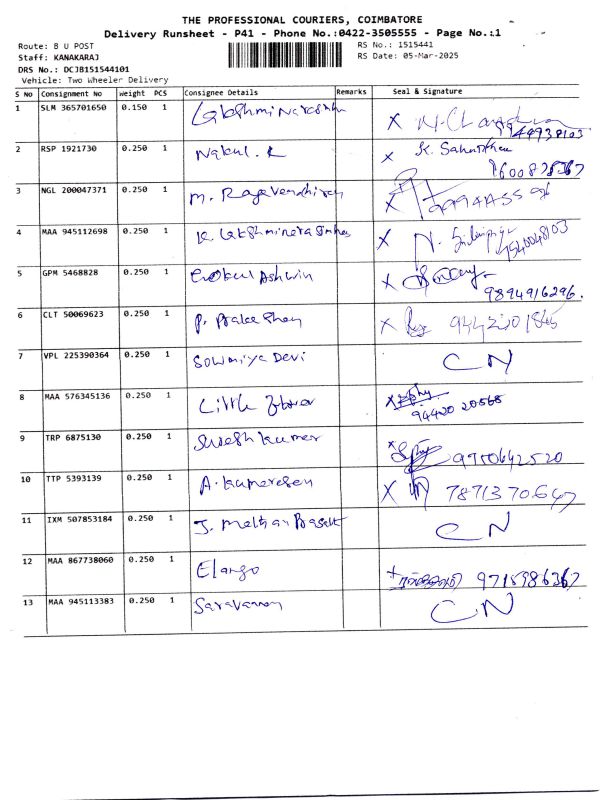 THE PROFESSIONAL COURIERS, COIMBATORE
Delivery Runsheet - P41 - Phone No.:0422-3505555 - Page No.:1
Route: B U POST
RS No.: 1515441
Staff: KANAKARAJ
RS Date: 05-Mar-2025
DRS No.: DCJB151544101
Vehicle: Two Wheeler Delivery
S No Consignment No Weight PCS Consignee Details Remarks Seal & Signature
1 SLM 365701650 0.150 1 Lakshmi Narasimha X
2 RSP 1921730 0.250 1 Nakul. K X K.
3 NGL 200047371 0.250 1 M. Ragavendhiran X
4 MAA 945112698 0.250 1 K. Lakshminarasimhan X N.
5 GPM 5468828 0.250 1 Gokul Ashwin X 9894916296.
6 CLT 50069623 0.250 1 P. X
7 VPL 225390364 0.250 1 Sowmiya Devi CN
8 MAA 576345136 0.250 1 Little X 94420 20568
9 TRP 6875130 0.250 1 Suresh kumar X 9750642520
10 TTP 5393139 0.250 1 A. Kumaresan X 7871370647
11 IXM 507853184 0.250 1 J. CN
12 MAA 867738060 0.250 1 Elango 9715986367
13 MAA 945113383 0.250 1 Saravanan CN